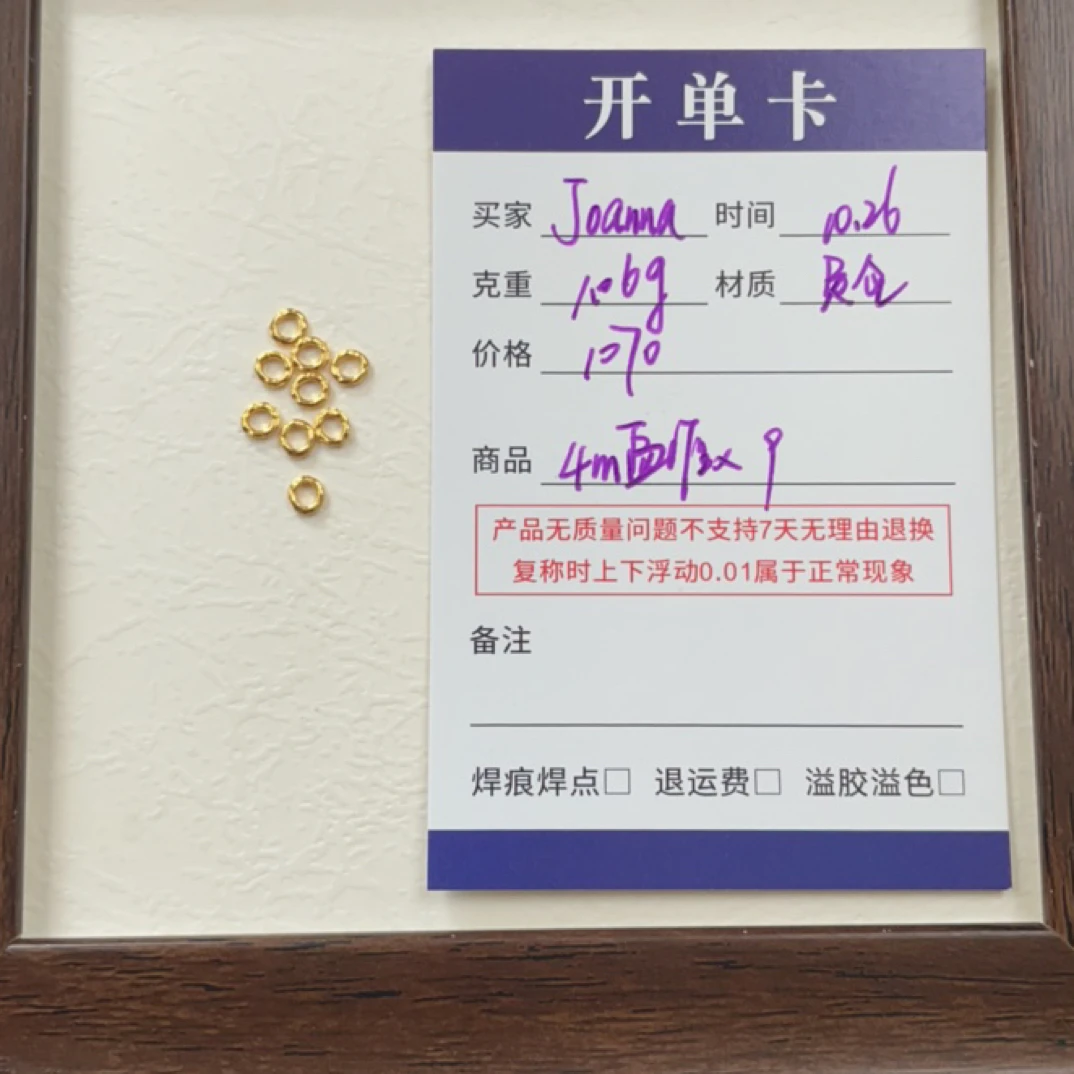 开单卡
买家 Joanna 时间 10.26
克重 1.06g 材质 黄金
价格 1070
商品 4m
产品无质量问题不支持7天无理由退换
复称时上下浮动0.01属于正常现象
备注
焊痕焊点□ 退运费□ 溢胶溢色□